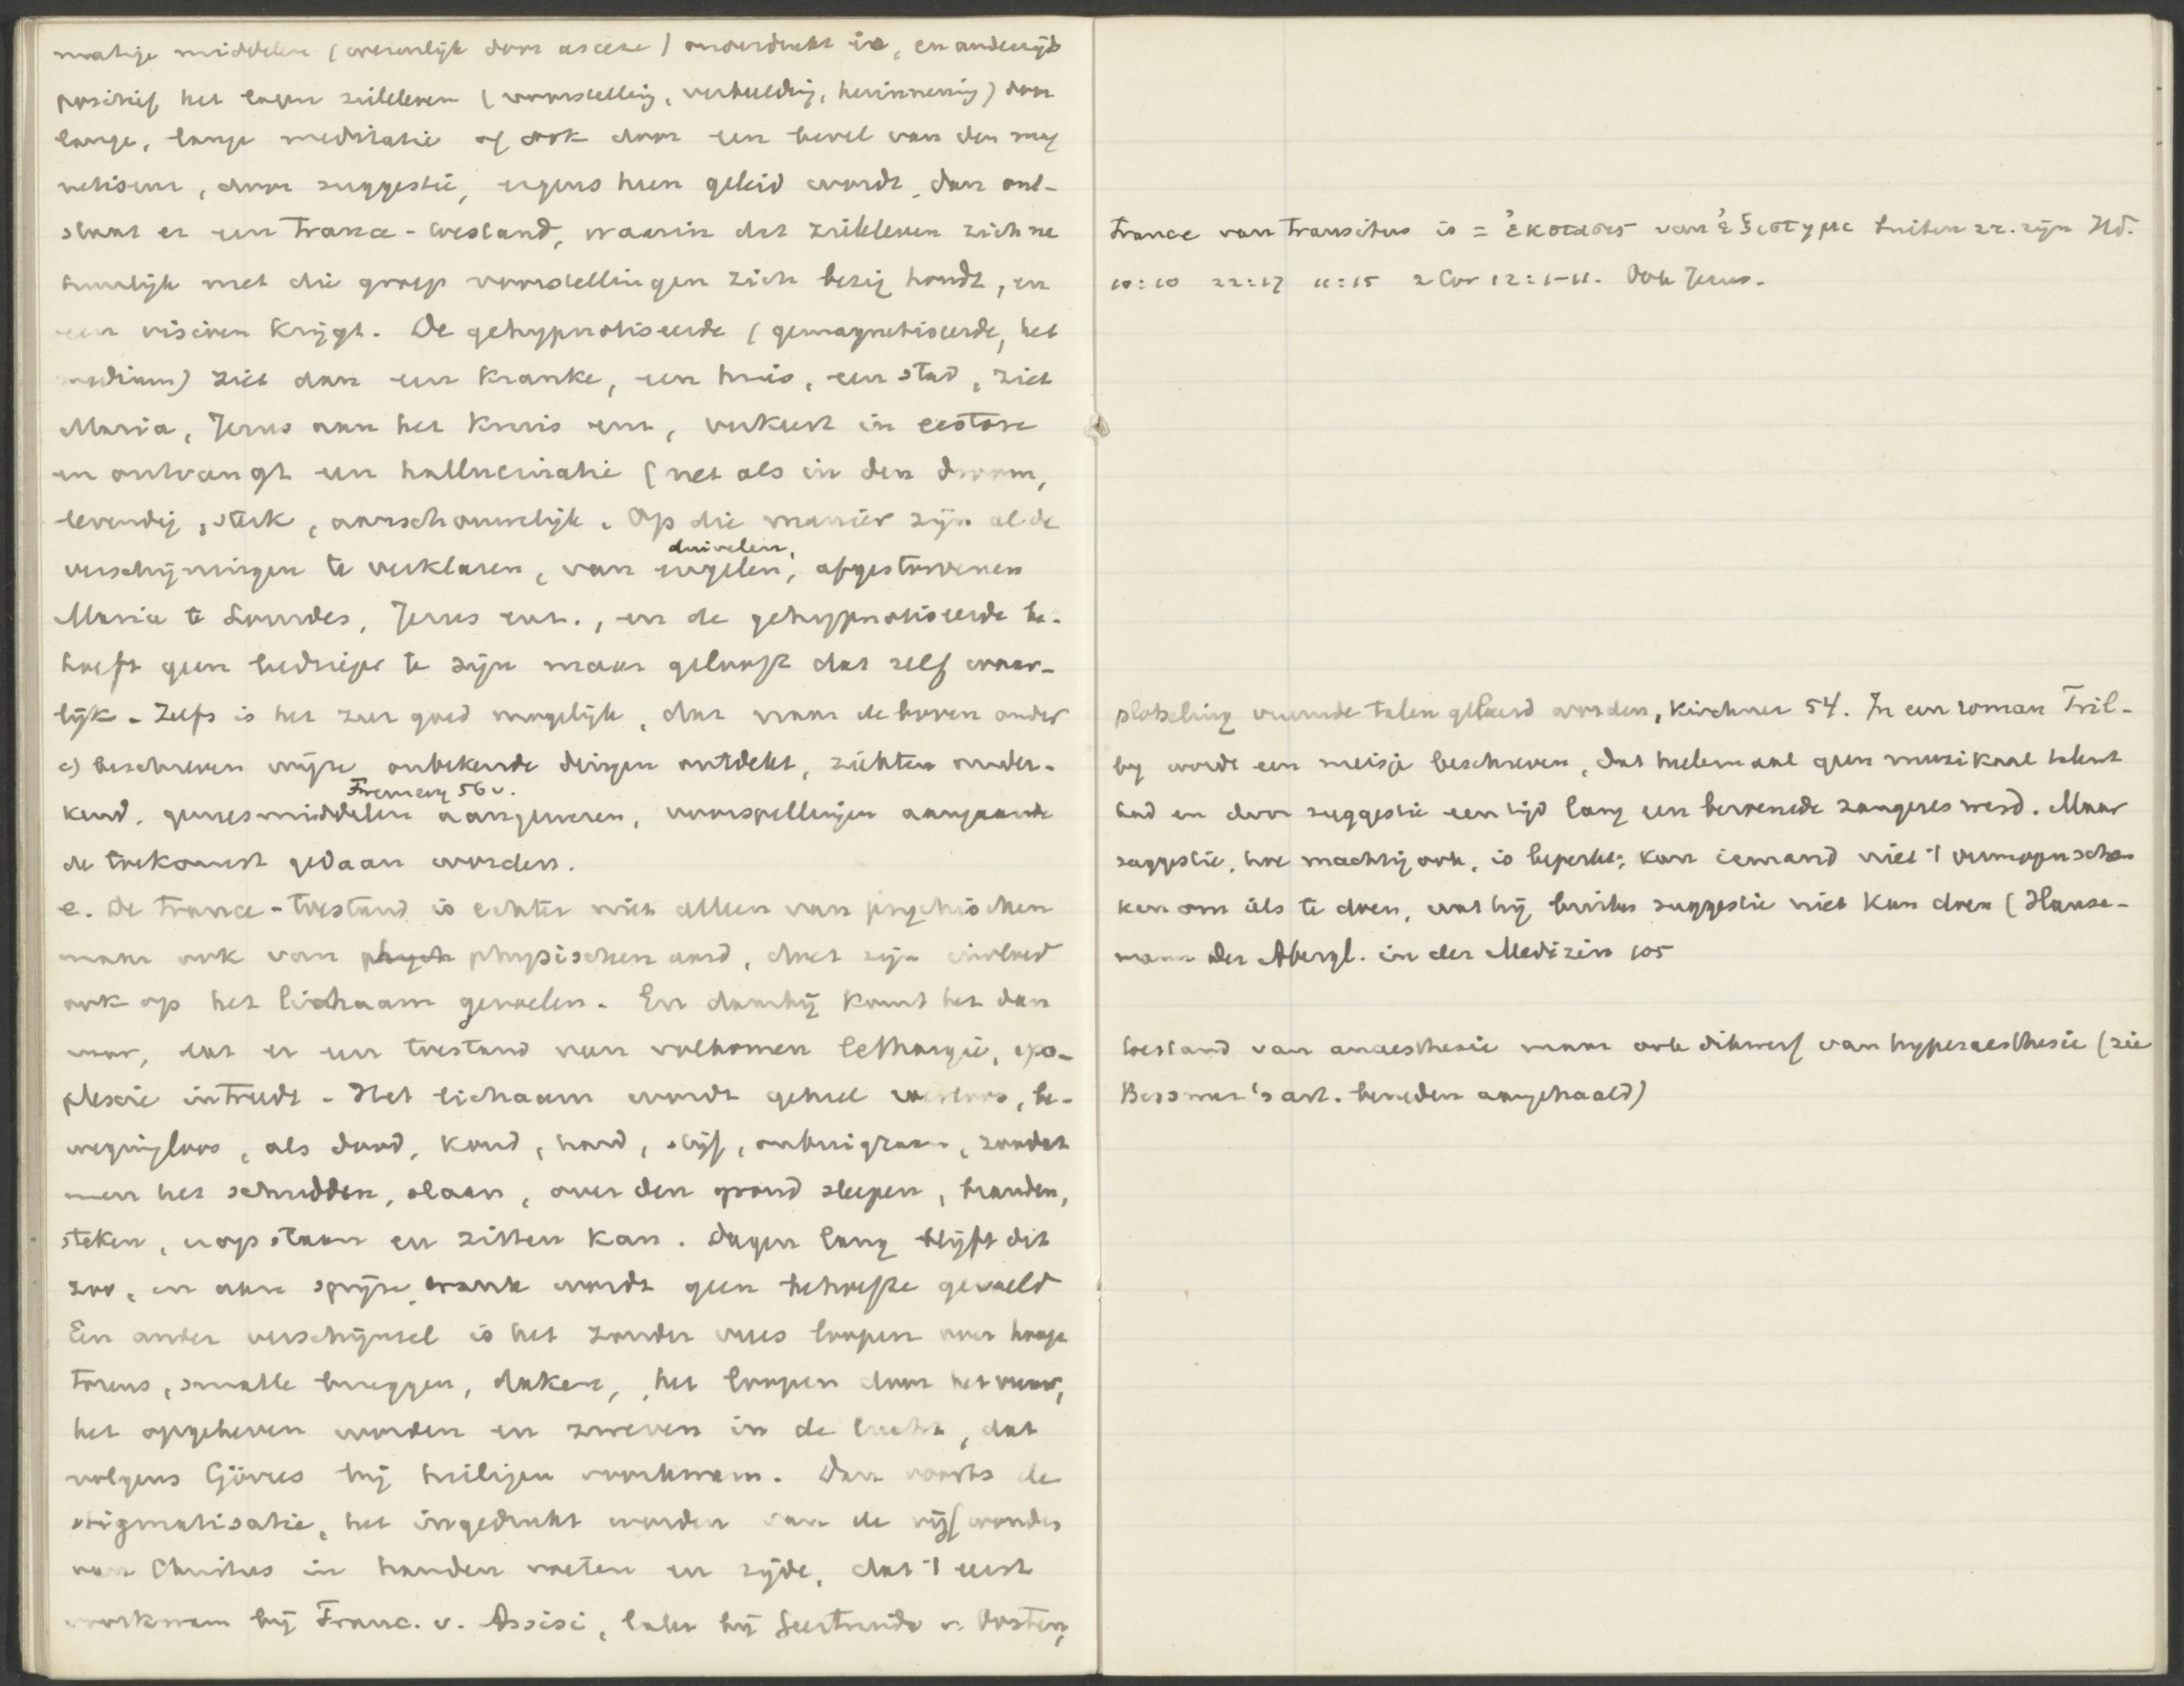 matige middelen (voornamelijk door ascese) onderdrukt is, en anderzijds
positief het eigen zieleleven (voorstelling, verbeelding, herinnering) door
lange, lange meditatie of ook door een bevel van den mag
netiseur, door suggestie, ergens heen geleid wordt, dan ont-
staat er een Trance-toestand, waarin dat zieleleven zich na
tuurlijk met die groep voorstellingen zich bezig houdt, en
een visioen krijgt. De gehypnotiseerde (gemagnetiseerde, het
medium) ziet dan een kranke, een huis, een stad, ziet
Maria, Jezus aan het kruis enz, verkeert in ecstase
en ontvangt een hallucinatie (net als in den droom,
levendig, sterk, aanschouwelijk. Op die manier zijn al de
duivelen,
verschijningen te verklaren, van engelen, afgestorvenen
Maria te Lourdes, Jezus enz., en de gehypnotiseerde be-
hoeft geen bedrieger te zijn maar gelooft dat zelf waar-
lijk. Zelfs is het zeer goed mogelijk, dat naar de boven onder
c) beschreven wijze onbekende dingen ontdekt, ziekten onder-
Fremery 56 v.
kend, geneesmiddelen aangewezen, voorspellingen aangaande
de toekomst gedaan worden.
e. De Trance-toestand is echter niet alleen van psychischen
maar ook van psych physischen aard, doet zijn invloed
ook op het lichaam gevoelen. En daarbij komt het dan
voor, dat er een toestand van volkomen lethargie, apo-
plexie intreedt. Het lichaam wordt geheel weerloos, be-
wegingloos, als dood, koud, hard, stijf, onbuigzaam, zoodat
men het schudden, slaan, over den grond sleepen, branden,
steken, erop staan en zitten kan. Dagen lang blijft dit
zoo, en aan spijze, drank wordt geen behoefte gevoeld
Een ander verschijnsel is het zonder vrees loopen over hooge
torens, smalle bruggen, daken, het loopen door het vuur,
het opgeheven worden en zweven in de lucht, dat
volgens Görres bij heiligen voorkwam. Dan voorts de
stigmatisatie, het ingedrukt worden van de vijf wonden
van Christus in handen voeten en zijde, dat 't eerst
voorkwam bij Franc. v. Assisi, later bij Geertruida v. Oosten,
Trance van Transitus is = ἐκστασις van ἐξιστημι buiten zz. zijn Hd.
10:10 22:17 11:15 2 Cor 12:1-11. Ook Jezus.
plotseling vreemde talen geleerd worden, Kirchner 54. In een roman Tril-
by wordt een meisje beschreven, dat heelemaal geen muzikaal talent
had en door suggestie een tijd lang een beroemde zangeres werd. Maar
suggestie, hoe machtig ook, is beperkt; kan iemand niet 't vermogen schen
ken om iets te doen, wat hij buiten suggestie niet kan doen (Hanse-
mann Der Abergl. in der Medizin 105
toestand van anaesthesie maar ook dikwerf van hyperaesthesie (zie
Bessmer's art. beneden aangehaald)